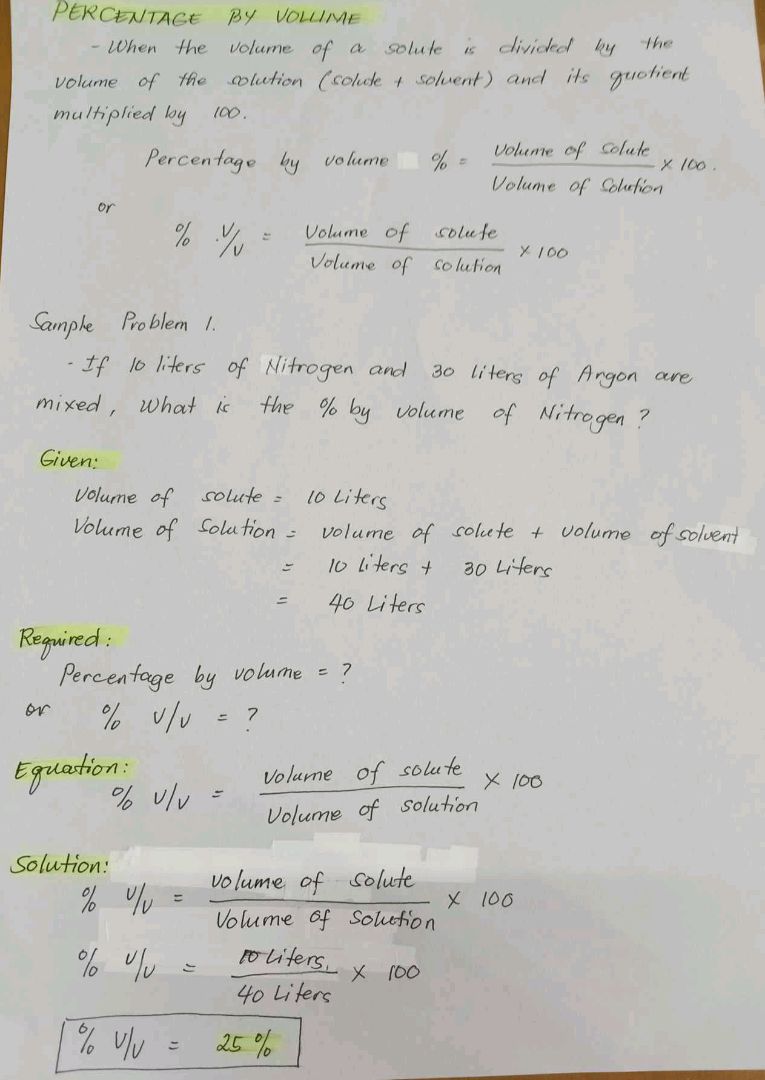 PERCENTAGE BY VOLUME
- When the volume of a solute is divided by the
volume of the solution (solute + solvent) and its quotient
multiplied by 100.
Percentage by volume % = Volume of solute / Volume of Solution x 100.
or
% V/V = Volume of solute / Volume of solution x 100
Sample Problem 1.
- If 10 liters of Nitrogen and 30 liters of Argon are
mixed, What is the % by volume of Nitrogen?
Given:
Volume of solute = 10 Liters
Volume of Solution = volume of solute + volume of solvent
= 10 liters + 30 Liters
= 40 Liters
Required:
Percentage by volume = ?
or % V/V = ?
Equation:
% V/V = Volume of solute / Volume of solution x 100
Solution:
% V/V = volume of solute / Volume of Solution x 100
% V/V = 10 Liters / 40 Liters x 100
% V/V = 25 %